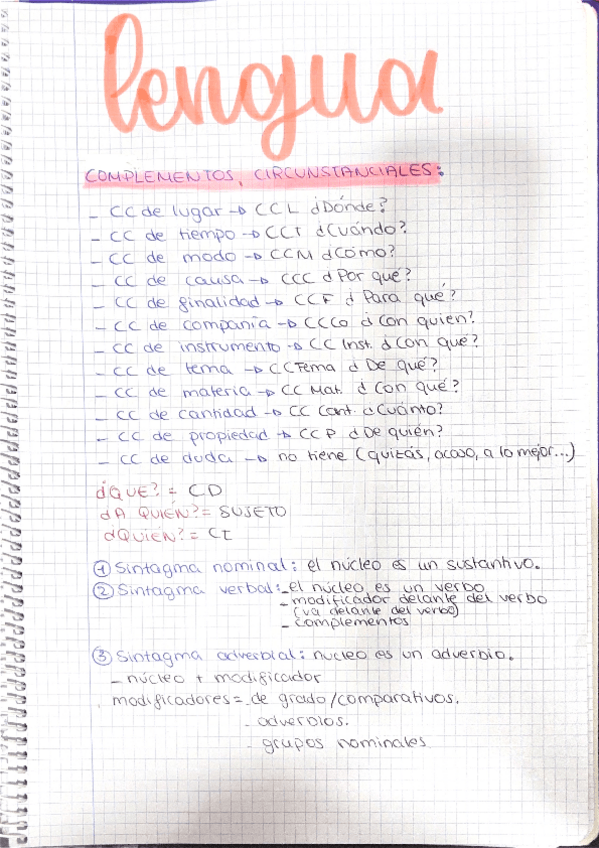 lengua
COMPLEMENTOS, CIRCUNSTANCIALES:
- CC de lugar → CCL ¿Dónde?
- CC de tiempo → CCT ¿Cuándo?
- CC de modo → CCM ¿Cómo?
- CC de causa → CCC ¿Por qué?
- CC de finalidad → CCF ¿Para qué?
- CC de compañía → CCCo ¿Con quien?
- CC de instrumento → CC Inst. ¿Con qué?
- CC de tema → CCTema ¿De qué?
- CC de materia → CC Mat. ¿Con qué?
- CC de cantidad → CC Cant. ¿Cuánto?
- CC de propiedad → CCP ¿De quién?
- CC de duda → no tiene (quizás, acaso, a lo mejor...)
¿QUE? = CD
¿A QUIÉN? = SUJETO
¿QUIÉN? = CI
① Sintagma nominal: el núcleo es un sustantivo.
② Sintagma verbal: - el núcleo es un verbo
- modificador delante del verbo
(va delante del verbo)
- complementos
③ Sintagma adverbial: nucleo es un adverbio.
- núcleo + modificador
modificadores = - de grado/comparativos.
- adverbios.
- grupos nominales